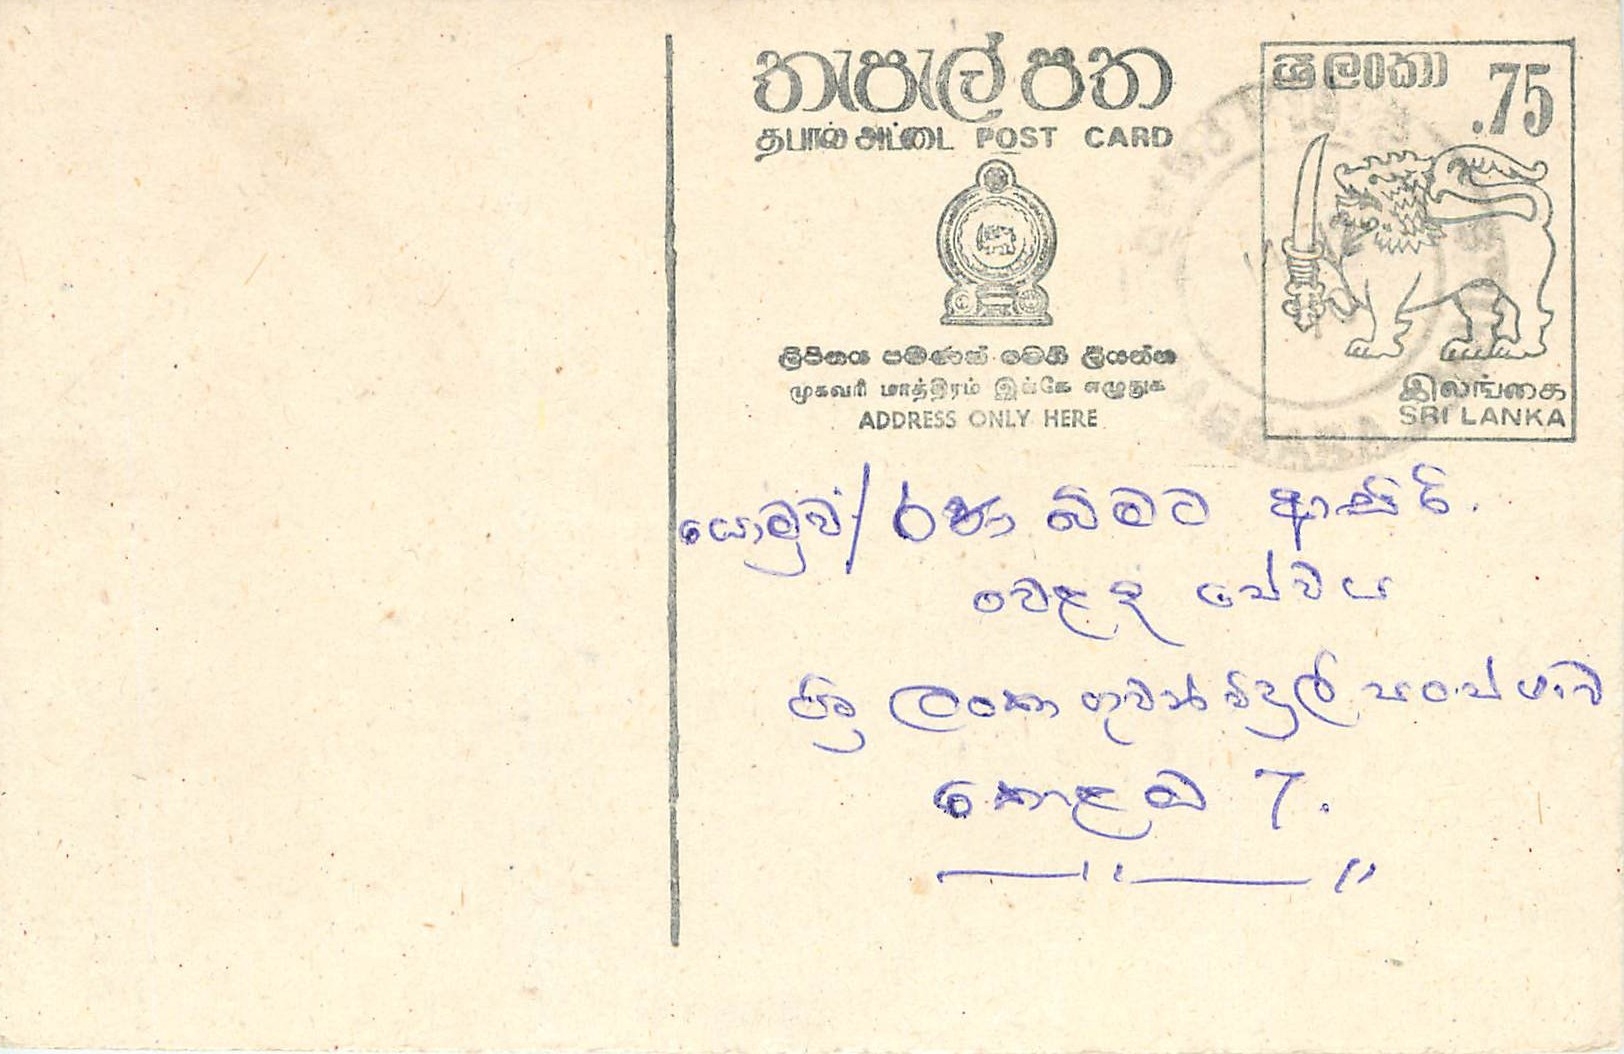 තැපැල් පත
தபால் அட்டை POST CARD
ශ්‍රී ලංකා .75
இலங்கை
SRI LANKA
ලිපිනය පමණක් මෙහි ලියන්න
முகவரி மாத்திரம் இங்கே எழுதுக
ADDRESS ONLY HERE
යොමුව/ රණ බිමට ආසිරි.
වෙළඳ සේවය
ශ්‍රී ලංකා ගුවන් විදුලි සංස්ථාව
කොළඹ 7.